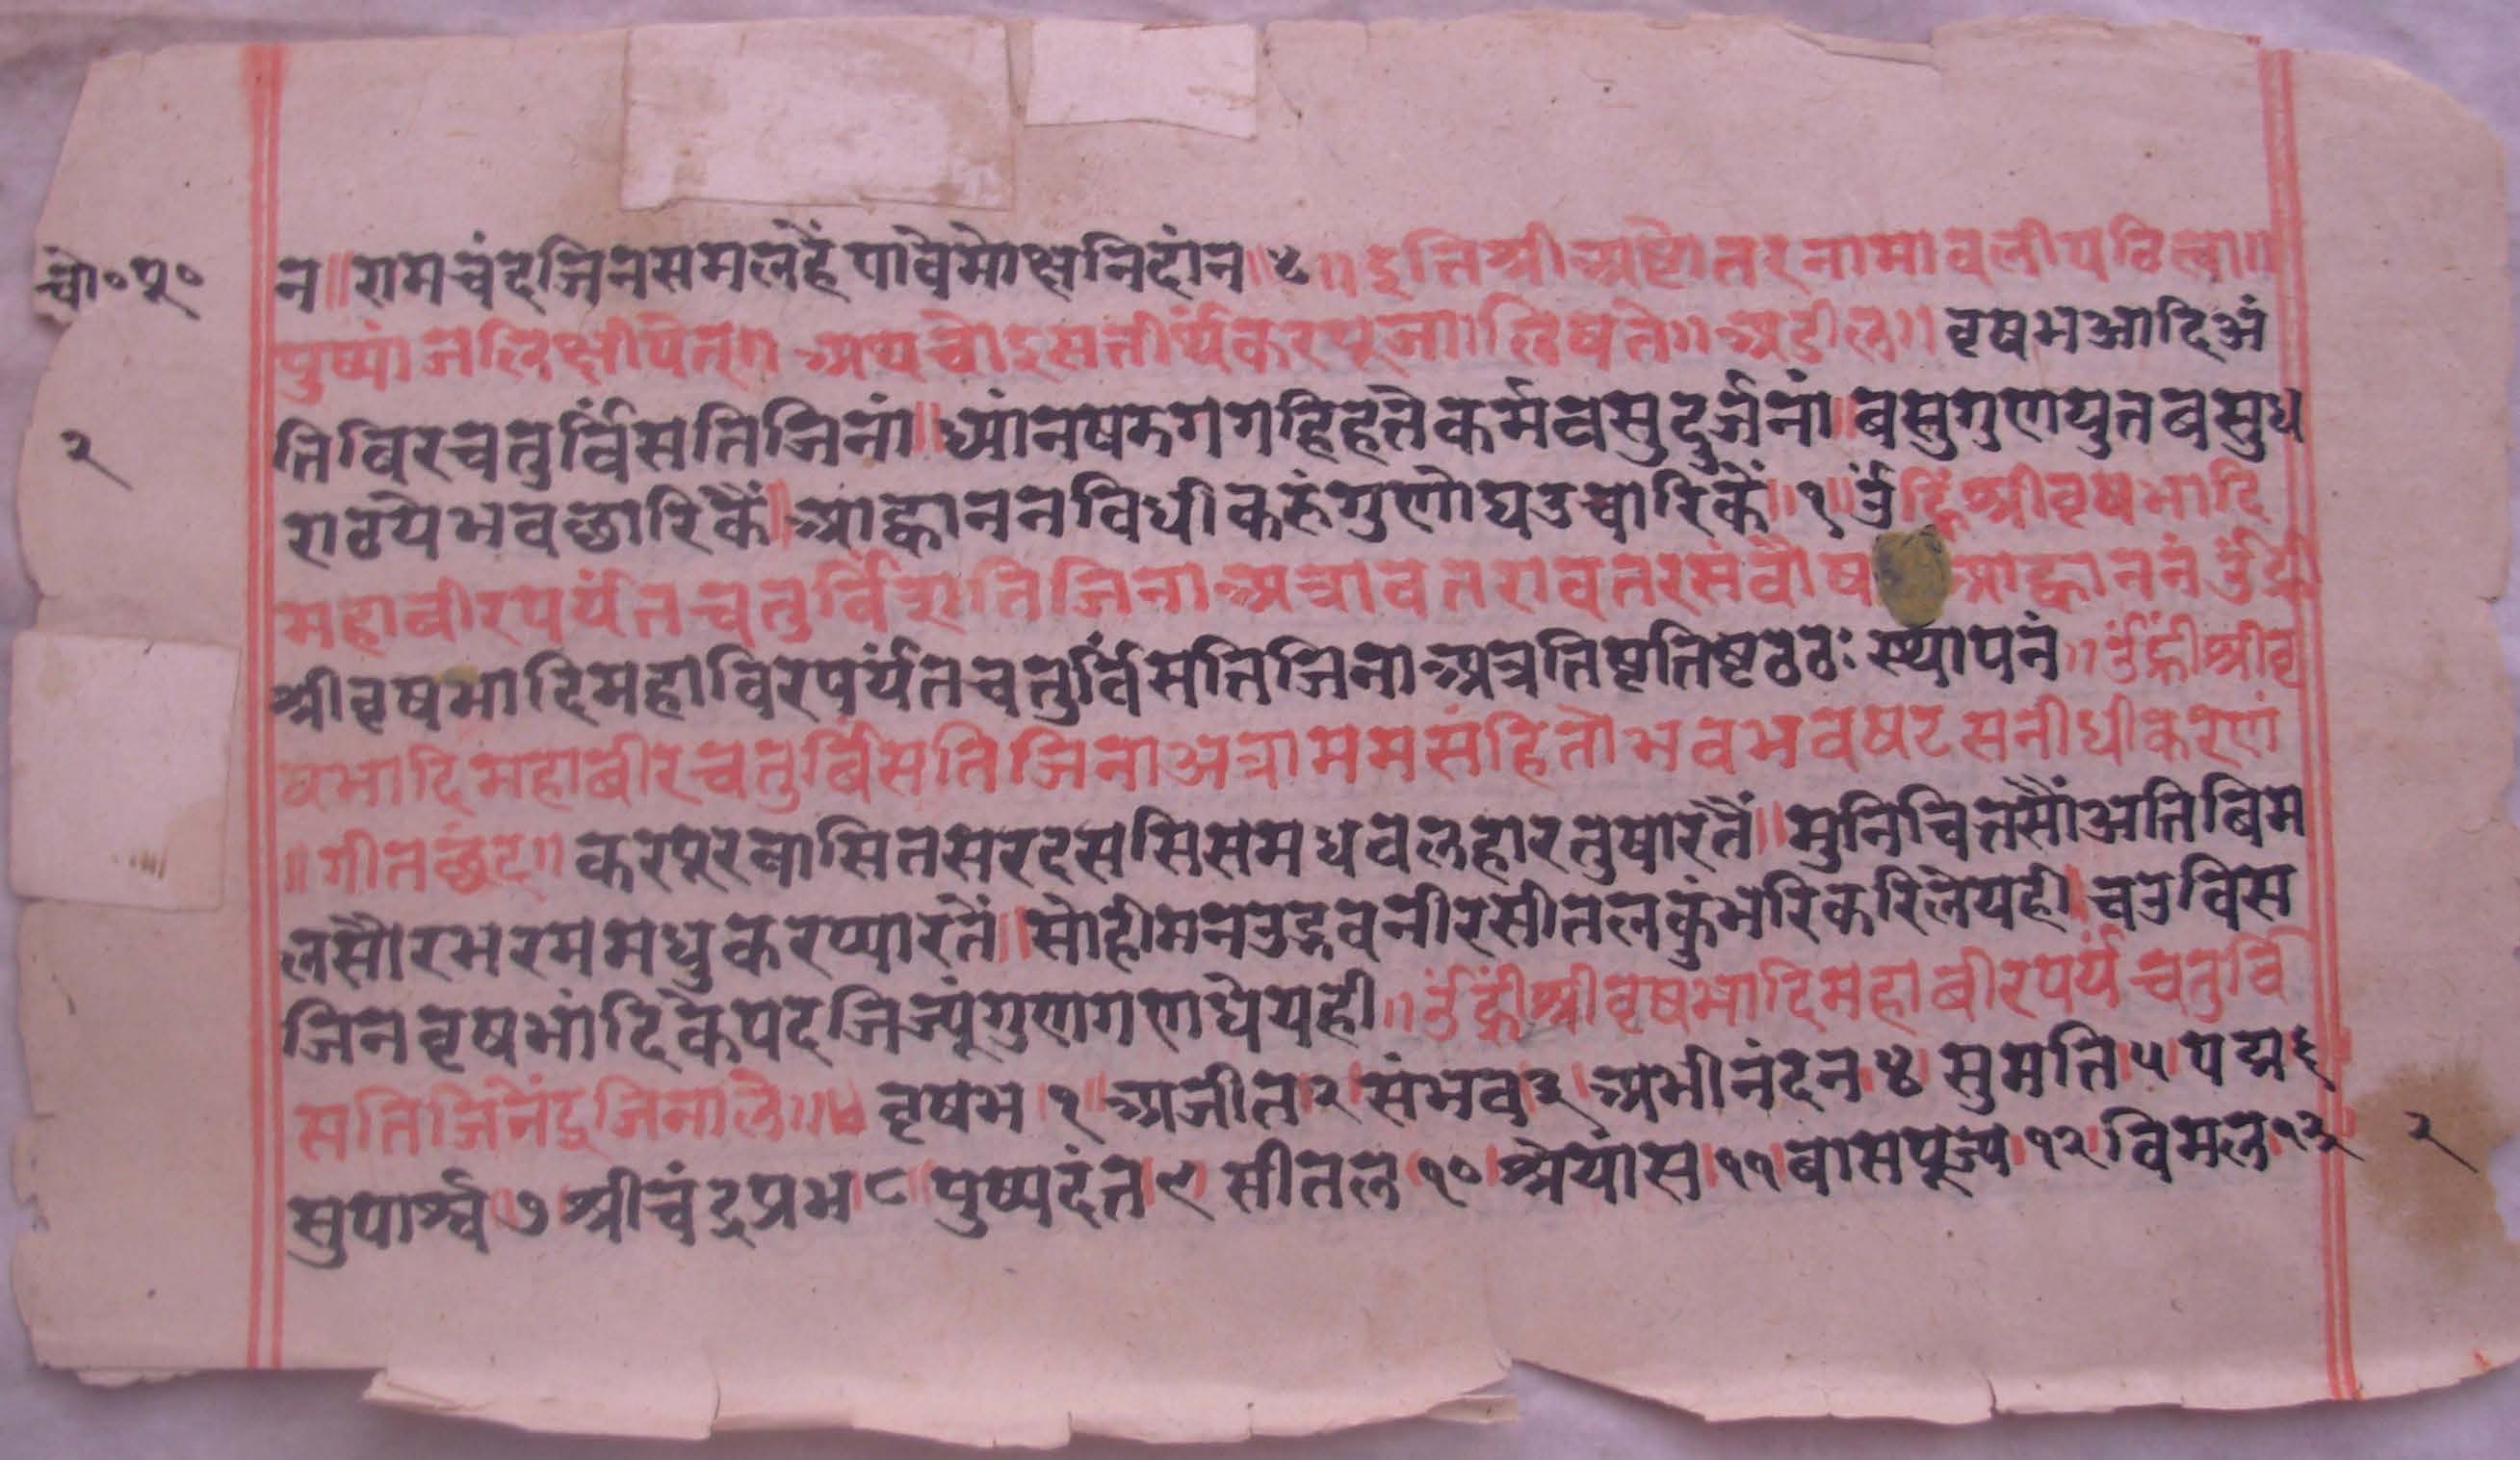 चो॰पू॰
२
न॥रामचंदजिनसमलहैपावैमोक्षनिदांन॥४॥इतिश्रीअष्टोतरनामावलीपठित्वा॥
पुष्पांजलिक्षीपेत्॥अथचोइसतीर्थंकरपूजालिषते॥अडील॥वृषभआदिअं
तिविरचतुर्विंसतिजिनां॥ध्यांनषडगगहिहतेकर्मवसुदुर्जनां॥बसुगुणयुतबसुध
राठयेभवछारिकैं॥आह्वाननविधीकरुंगुणोघउचारिकैं॥१॥ॐह्रिंश्रीवृषभादि
महावीरपर्यंतचतुर्विंशतिजिनाअत्रावतरावतरसंवौष आह्वाननंॐह्रीं
श्रीवृषभादिमहाविरपर्यंतचतुर्विंसतिजिनाअत्रतिष्टतिष्टठठः स्थापनं॥ॐह्रीश्रीवृ
षभादिमहाबीरचतुर्बिंसतिजिनाअत्राममसंहितोभवभवषटसनीधीकरणं
॥गीतछंद॥करपूरबासितसरदससिसमधवलहारतुषारतैं॥मुनिचितसौंअतिबिम
लसौरभरममधुकरप्यारतैं॥सोहीमनउद्भवनीरसीतलकुंभभरिकरिलेयही॥चउविस
जिनवृषभांदिकैपदजिज्यूंगुणगणधेयही॥ॐह्रींश्रीवृषभादिमहाबीरपर्यंचतुर्वि
सतिजिनेंद्रजिनालै॥वृषभ१॥अजीत२संभव३अभीनंदन४सुमति५पद्म६
सुपार्श्व७श्रीचंद्रप्रभ८पुष्पदंत९सीतल१०श्रेयांस११बासपूज्य१२विमल१३
२